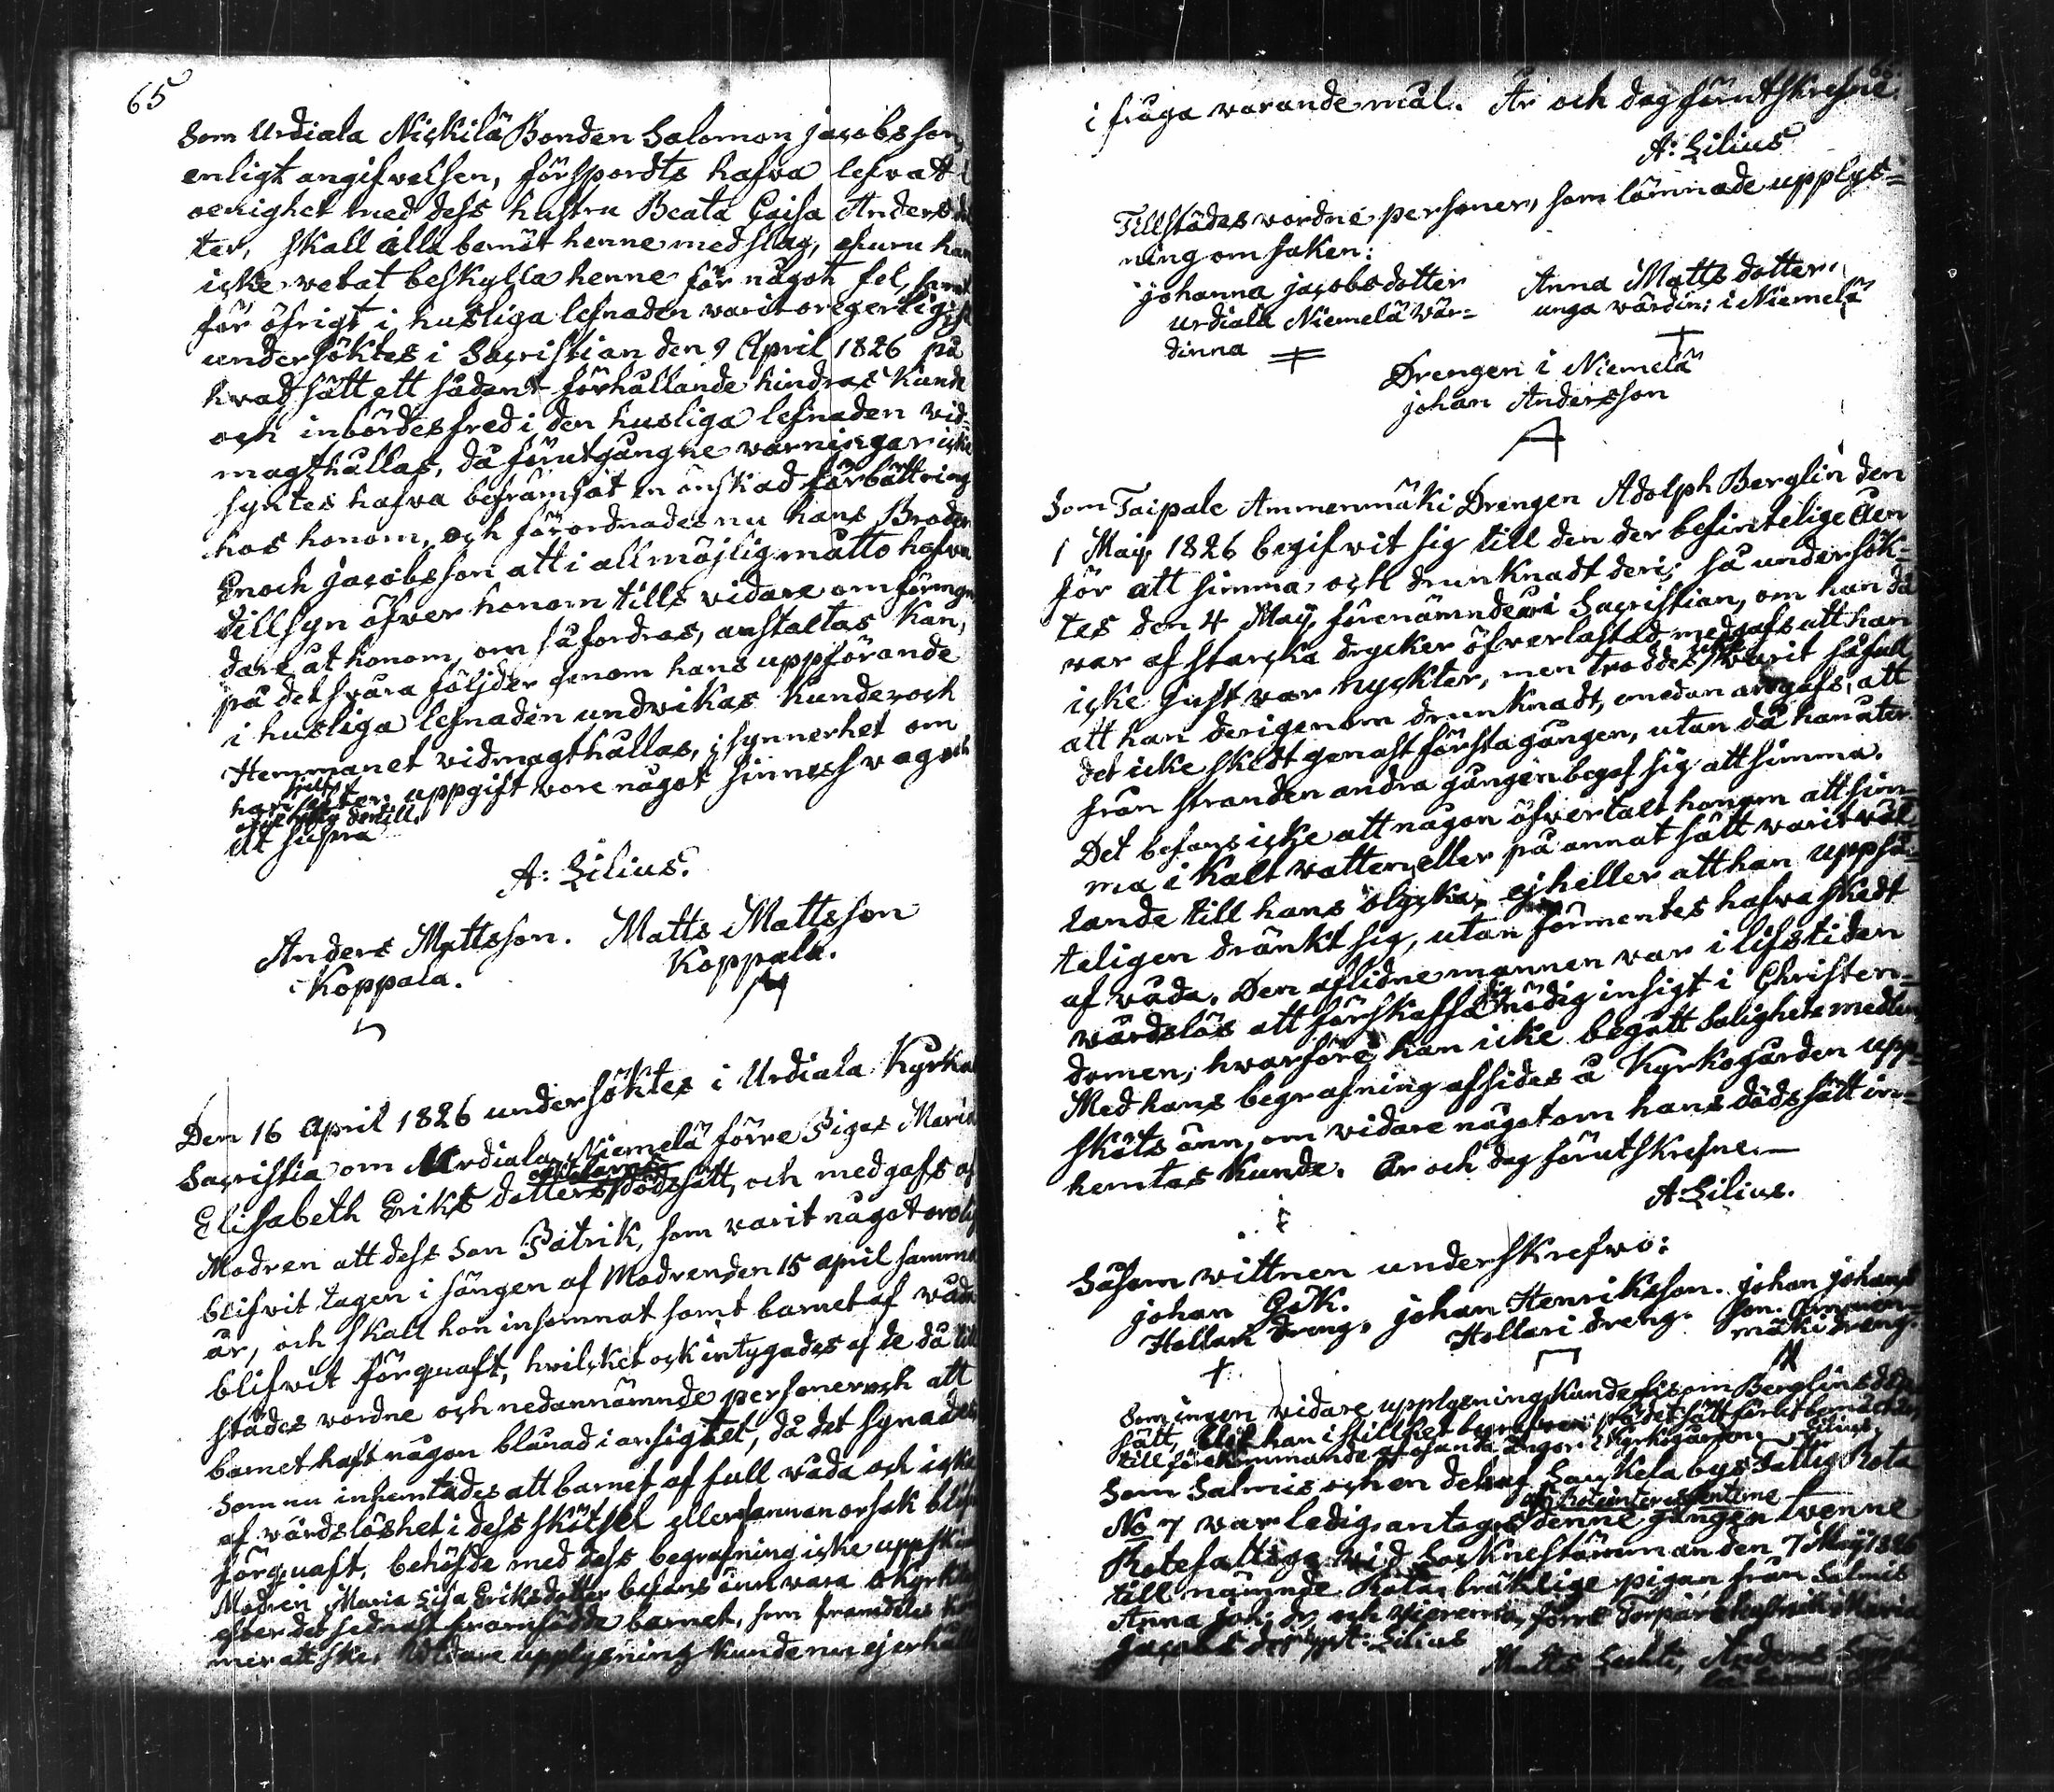 65
Som Urdiala Nickilä Bonden Salomon Jacobsson,
enligt angifvelsen, förspordts hafva lefvat i
oenighet med dess hustru Beata Caisa Anders
ter, skall illa bemöt henne med slag, ehuru han
icke vetat beskylla henne för något fel,
för öfrigt i husliga lefnaden varit oregerlig;
undersöktes i Sacristian den 9 April 1826 på
hvad sätt ett sådant förhållande hindras kunde
och inbördes fred i den husliga lefnaden vid-
magthållas, då förutgångne varningar icke
syntes hafva befrämjat en önskad förbättring
hos honom, och förordnades nu hans Broder
Enoch Jacobsson att i all möjlig måtto hafva
tillsyn öfver honom tills vidare om förmyn
dare åt honom, om så fordras, anstaltas kan,
på det svåra följder genom hans uppförande
i husliga lefnaden undvikas kunde, och
Hemmanet vidmagthållas, i synnerhet om
han efter uppgift vore något sinnessvag och
dertill.
Ut supra
A: Lilius.
Anders Mattsson. Matts Mattsson
Koppala. Koppala.
Den 16 April 1826 undersöktes i Urdiala Kyrka
Sacristia om Urdiala Niemelä förre Pigas Maria
Elisabeth Eriks dotters dödssätt, och medgafs af
Modren att dess Son Patrik, som varit något orolig
blifvit tagen i sängen af Modren den 15 april samma
år, och skall hon insomnat samt barnet af våda
blifvit förquaft, hvilcket ock intygades af de då till
städes vordne och nedannämnde personer och att
barnet haft någon blånad i ansigtet, då det synades
Som nu inhemtades att barnet af full våda och icke
af vårdslöshet i dess skötsel eller annan orsak blifvit
förquaft, behöfde med dess begrafning icke uppsk
Modren Maria Lisa Eriksdotter befans ännu vara okyrktagen
efter det sednast framfödde barnet, som framdeles kom
mer att ske. Vidare upplysning kunde nu ej erhålles
i fråga varande mål. År och dag förutskrefne.
A: Lilius
Tillstädes vordne personer, som lämnade upplys-
ning om saken:
Johanna Jacobsdotter Anna Matts dotter,
Urdiala Niemelä Vär- unga värdin: i Niemelä
dinna
Drengen i Niemelä
Johan Andersson
Som Taipale Ammenmäki Drengen Adolph Berglin den
1 Maij 1826 begifvit sig till den der befintelige Åen
för att simma, och drunknadt deri; så undersök-
tes den 4 Maij förenämnde år i Sacristian, om han då
var af starcka drycker öfverlastad, medgafs att han
icke just var nyckter, men troddes icke varit så full
att han derigenom drunknadt, emedan angafs, att
det icke skedt genast första gången, utan då han åter
från stranden andra gången begaf sig att simma.
Det befans icke att någon öfvertalt honom att sim-
ma i kalt vatten, eller på annat sätt varit vål-
lande till hans olycka, ej heller att han uppså-
teligen dränkt sig, utan förmentes hafva skedt
af våda. Den aflidne mannen var i lifstiden
vårdslös att förskaffa sig nödig insigt i Christen-
domen, hvarföre han icke begått Salighets medlen,
Med hans begrafning afsides å Kyrkogården upp-
sköts änn, om vidare något om hans dödssätt in-
hemtas kunde. År och dag förutskrefne.—
A: Lilius.
Såsom vittnen underskrefvo:
Johan Gök. Johan Henriksson. Johan Johans
Hollari Dreng. Hollari dreng. son. Ammen-
mäki dreng.
Som ingen vidare upplysning kunde fås om Berglins döds
sätt, blef han i stillhet begrafven på det sätt
till förekommande af Kyrkogården. Lilius.
Som Salmis och en del af Saukela bys Fattig Rota
af Roteinteressenterne
No 7 var ledig, antogs denne gången tvenne
Rotefattiga vid Socknestämman den 7 Maij 1826
till nämnde Rota, bräklige pigan från Salmis
Anna Joh: dr och förre Torpare hustrun Maria
Jacobs dr Lilius
Matts Anders